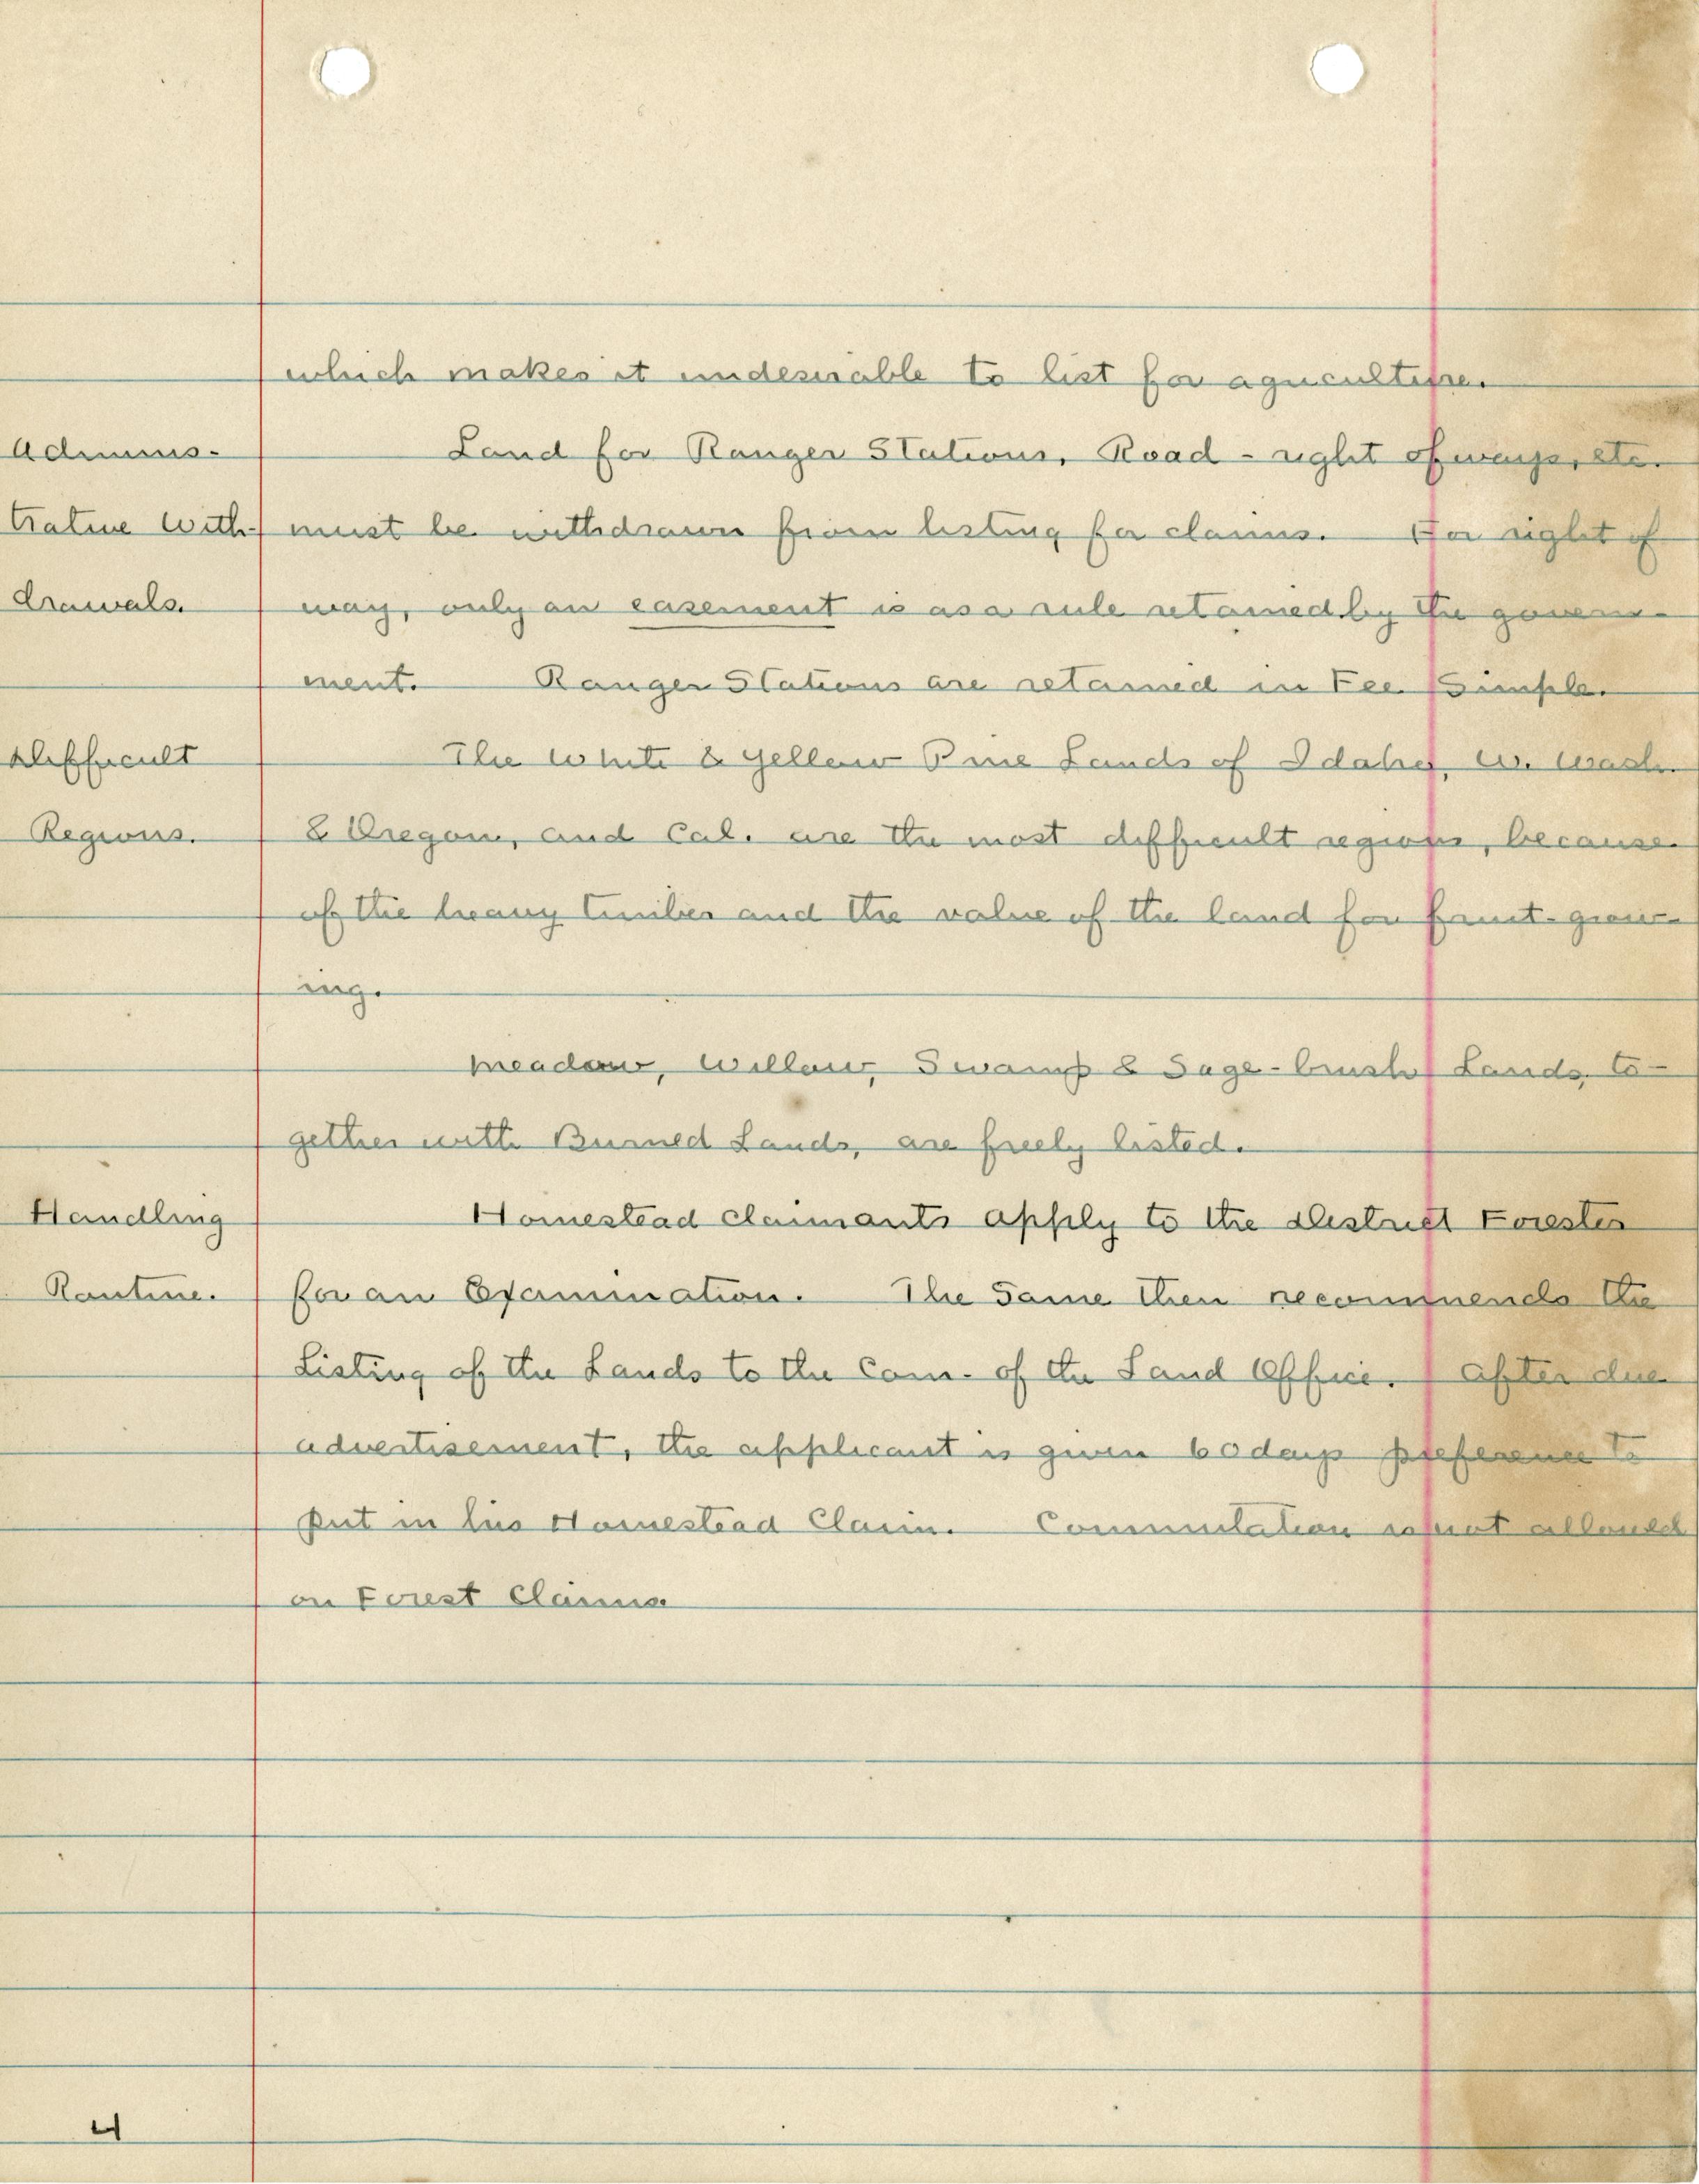 which makes it undesirable to list for agriculture.
Adminis-
Land for Ranger Stations, Road - right of ways, etc.
trative With-
must be withdrawn from listing for claims. For right of
drawals.
way, only an easement is as a rule retained by the govern-
ment. Ranger Stations are retained in Fee Simple.
Difficult
The White & Yellow Pine Lands of Idaho, W. Wash.
Regions.
& Oregon, and Cal. are the most difficult regions, because
of the heavy timber and the value of the land for fruit-grow-
ing.
Meadow, Willow, Swamp & Sage-brush Lands, to-
gether with Burned Lands, are freely listed.
Handling
Homestead Claimants apply to the District Forester
Routine.
for an Examination. The Same then recommends the
Listing of the Lands to the Com. of the Land Office. After due
advertisement, the applicant is given 60 days preference to
put in his Homestead Claim. Commutation is not allowed
on Forest Claims.
4